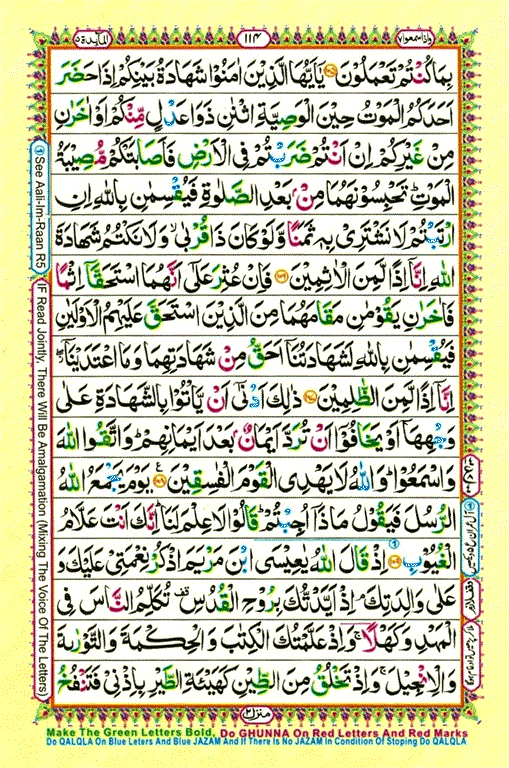 المآئدة ٥
١١٤
واذا سمعوا ٧
بِمَا كُنۡتُمۡ تَعۡمَلُوۡنَ ۝ يٰۤاَيُّهَا الَّذِيۡنَ اٰمَنُوۡا شَهَادَةُ بَيۡنِكُمۡ اِذَا حَضَرَ
اَحَدَكُمُ الۡمَوۡتُ حِيۡنَ الۡوَصِيَّةِ اثۡنٰنِ ذَوَا عَدۡلٍ مِّنۡكُمۡ اَوۡ اٰخَرٰنِ
مِنۡ غَيۡرِكُمۡ اِنۡ اَنۡتُمۡ ضَرَبۡتُمۡ فِى الۡاَرۡضِ فَاَصَابَتۡكُمۡ مُّصِيۡبَةُ
الۡمَوۡتِ ؕ تَحۡبِسُوۡنَهُمَا مِنۡۢ بَعۡدِ الصَّلٰوةِ فَيُقۡسِمٰنِ بِاللّٰهِ اِنِ
ارۡتَبۡتُمۡ لَا نَشۡتَرِىۡ بِهٖ ثَمَنًا وَّلَوۡ كَانَ ذَا قُرۡبٰى ۙ وَلَا نَكۡتُمُ شَهَادَةَ
اللّٰهِ اِنَّاۤ اِذًا لَّمِنَ الۡاٰثِمِيۡنَ ۝ فَاِنۡ عُثِرَ عَلٰٓى اَنَّهُمَا اسۡتَحَقَّاۤ اِثۡمًا
فَاٰخَرٰنِ يَقُوۡمٰنِ مَقَامَهُمَا مِنَ الَّذِيۡنَ اسۡتَحَقَّ عَلَيۡهِمُ الۡاَوۡلَيٰنِ
فَيُقۡسِمٰنِ بِاللّٰهِ لَشَهَادَتُنَاۤ اَحَقُّ مِنۡ شَهَادَتِهِمَا وَمَا اعۡتَدَيۡنَاۤ ۖ
اِنَّاۤ اِذًا لَّمِنَ الظّٰلِمِيۡنَ ۝ ذٰلِكَ اَدۡنٰٓى اَنۡ يَّاۡتُوۡا بِالشَّهَادَةِ عَلٰى
وَجۡهِهَاۤ اَوۡ يَخَافُوۡۤا اَنۡ تُرَدَّ اَيۡمَانٌۢ بَعۡدَ اَيۡمَانِهِمۡ ؕ وَاتَّقُوا اللّٰهَ
وَاسۡمَعُوۡا ؕ وَاللّٰهُ لَا يَهۡدِى الۡقَوۡمَ الۡفٰسِقِيۡنَ ۝ يَوۡمَ يَجۡمَعُ اللّٰهُ
الرُّسُلَ فَيَقُوۡلُ مَاذَاۤ اُجِبۡتُمۡ ؕ قَالُوۡا لَا عِلۡمَ لَنَا ؕ اِنَّكَ اَنۡتَ عَلَّامُ
الۡغُيُوۡبِ ۝ اِذۡ قَالَ اللّٰهُ يٰعِيۡسَى ابۡنَ مَرۡيَمَ اذۡكُرۡ نِعۡمَتِىۡ عَلَيۡكَ وَ
عَلٰى وَالِدَتِكَ ۘ اِذۡ اَيَّدْتُّكَ بِرُوۡحِ الۡقُدُسِ تُكَلِّمُ النَّاسَ فِى
الۡمَهۡدِ وَكَهۡلًا ۚ وَاِذۡ عَلَّمۡتُكَ الۡكِتٰبَ وَالۡحِكۡمَةَ وَالتَّوۡرٰٮةَ
وَالۡاِنۡجِيۡلَ ۚ وَاِذۡ تَخۡلُقُ مِنَ الطِّيۡنِ كَهَيۡئَةِ الطَّيۡرِ بِاِذۡنِىۡ فَتَنۡفُخُ
منزل ٢
① See Aali-Im-Raan R5
(IF Read Jointly, There Will Be Amalgamation (Mixing The Voice Of The Letters)
Make The Green Letters Bold, Do GHUNNA On Red Letters And Red Marks
Do QALQLA On Blue Leters And Blue JAZAM And If There Is No JAZAM In Condition Of Stoping Do QALQLA